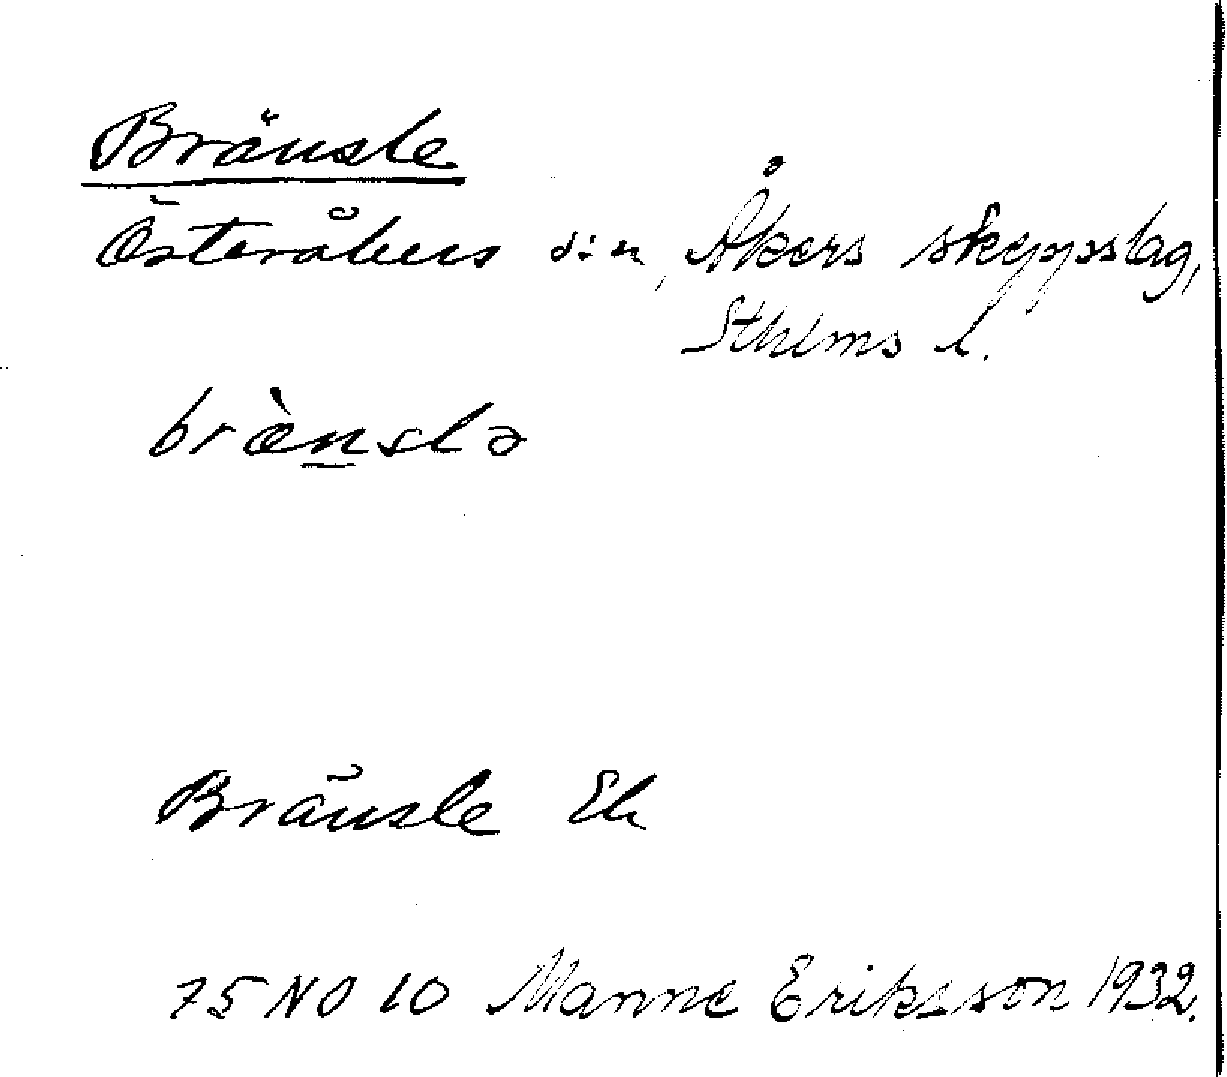 Bränsle
Österåkers s:n, Åkers skeppslag,
Sthlms l.
bræ̀nslə
Bränsle Ek
75 NO 10 Manne Eriksson 1932.